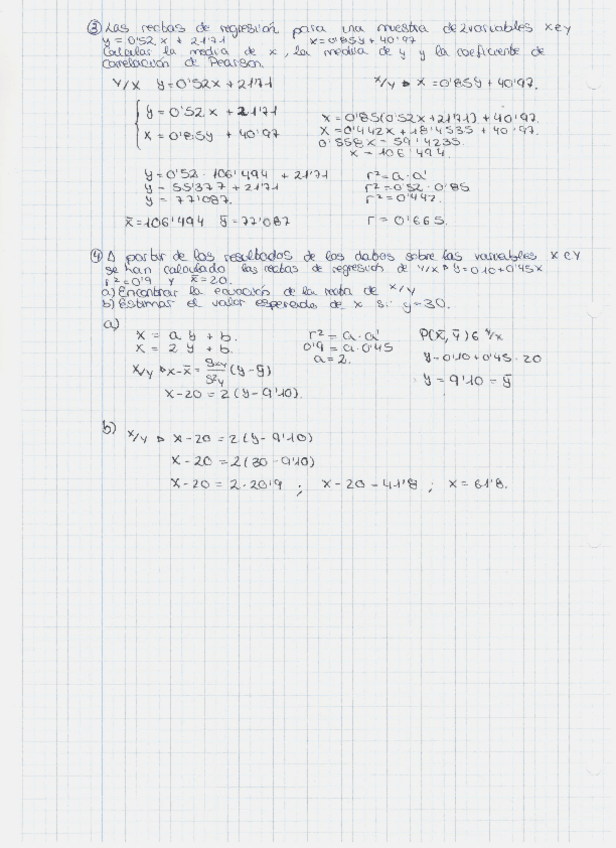 ③ Las rectas de regresión para una muestra de 2 variables x e y
y = 0'52 x + 21'71 x = 0'85y + 40'97
Calcular la media de x, la media de y y la coeficiente de
correlación de Pearson.
Y/X y = 0'52x + 21'71 x/y → x = 0'85y + 40'97.
y = 0'52 x + 21'71
x = 0'85y + 40'97
x = 0'85(0'52x + 21'71) + 40'97.
x = 0'442x + 18'4535 + 40'97.
0'558x = 59'4235.
x = 106'494.
y = 0'52 · 106'494 + 21'71
y = 55'377 + 21'71
y = 77'087.
r² = a · a'
r² = 0'52 · 0'85
r² = 0'442.
x̄ = 106'494 ȳ = 77'087 r = 0'665.
④ A partir de los resultados de los datos sobre las variables x e y
se han calculado las rectas de regresión de y/x → y = 0'10 + 0'45x
r² = 0'9 y x̄ = 20.
a) Encontrar la ecuación de la recta de x/y
b) Estimar el valor esperado de x si y = 30.
a)
x = a y + b.
x = 2 y + b.
x/y → x - x̄ = Sxy/S²y (y - ȳ)
x - 20 = 2 (y - 9'10).
r² = a · a'
0'9 = a · 0'45
a = 2.
P(x̄, ȳ) ∈ y/x
y = 0'10 + 0'45 · 20
y = 9'10 = ȳ
b)
x/y → x - 20 = 2(y - 9'10)
x - 20 = 2(30 - 9'10)
x - 20 = 2 · 20'9 ; x - 20 = 41'8 ; x = 61'8.